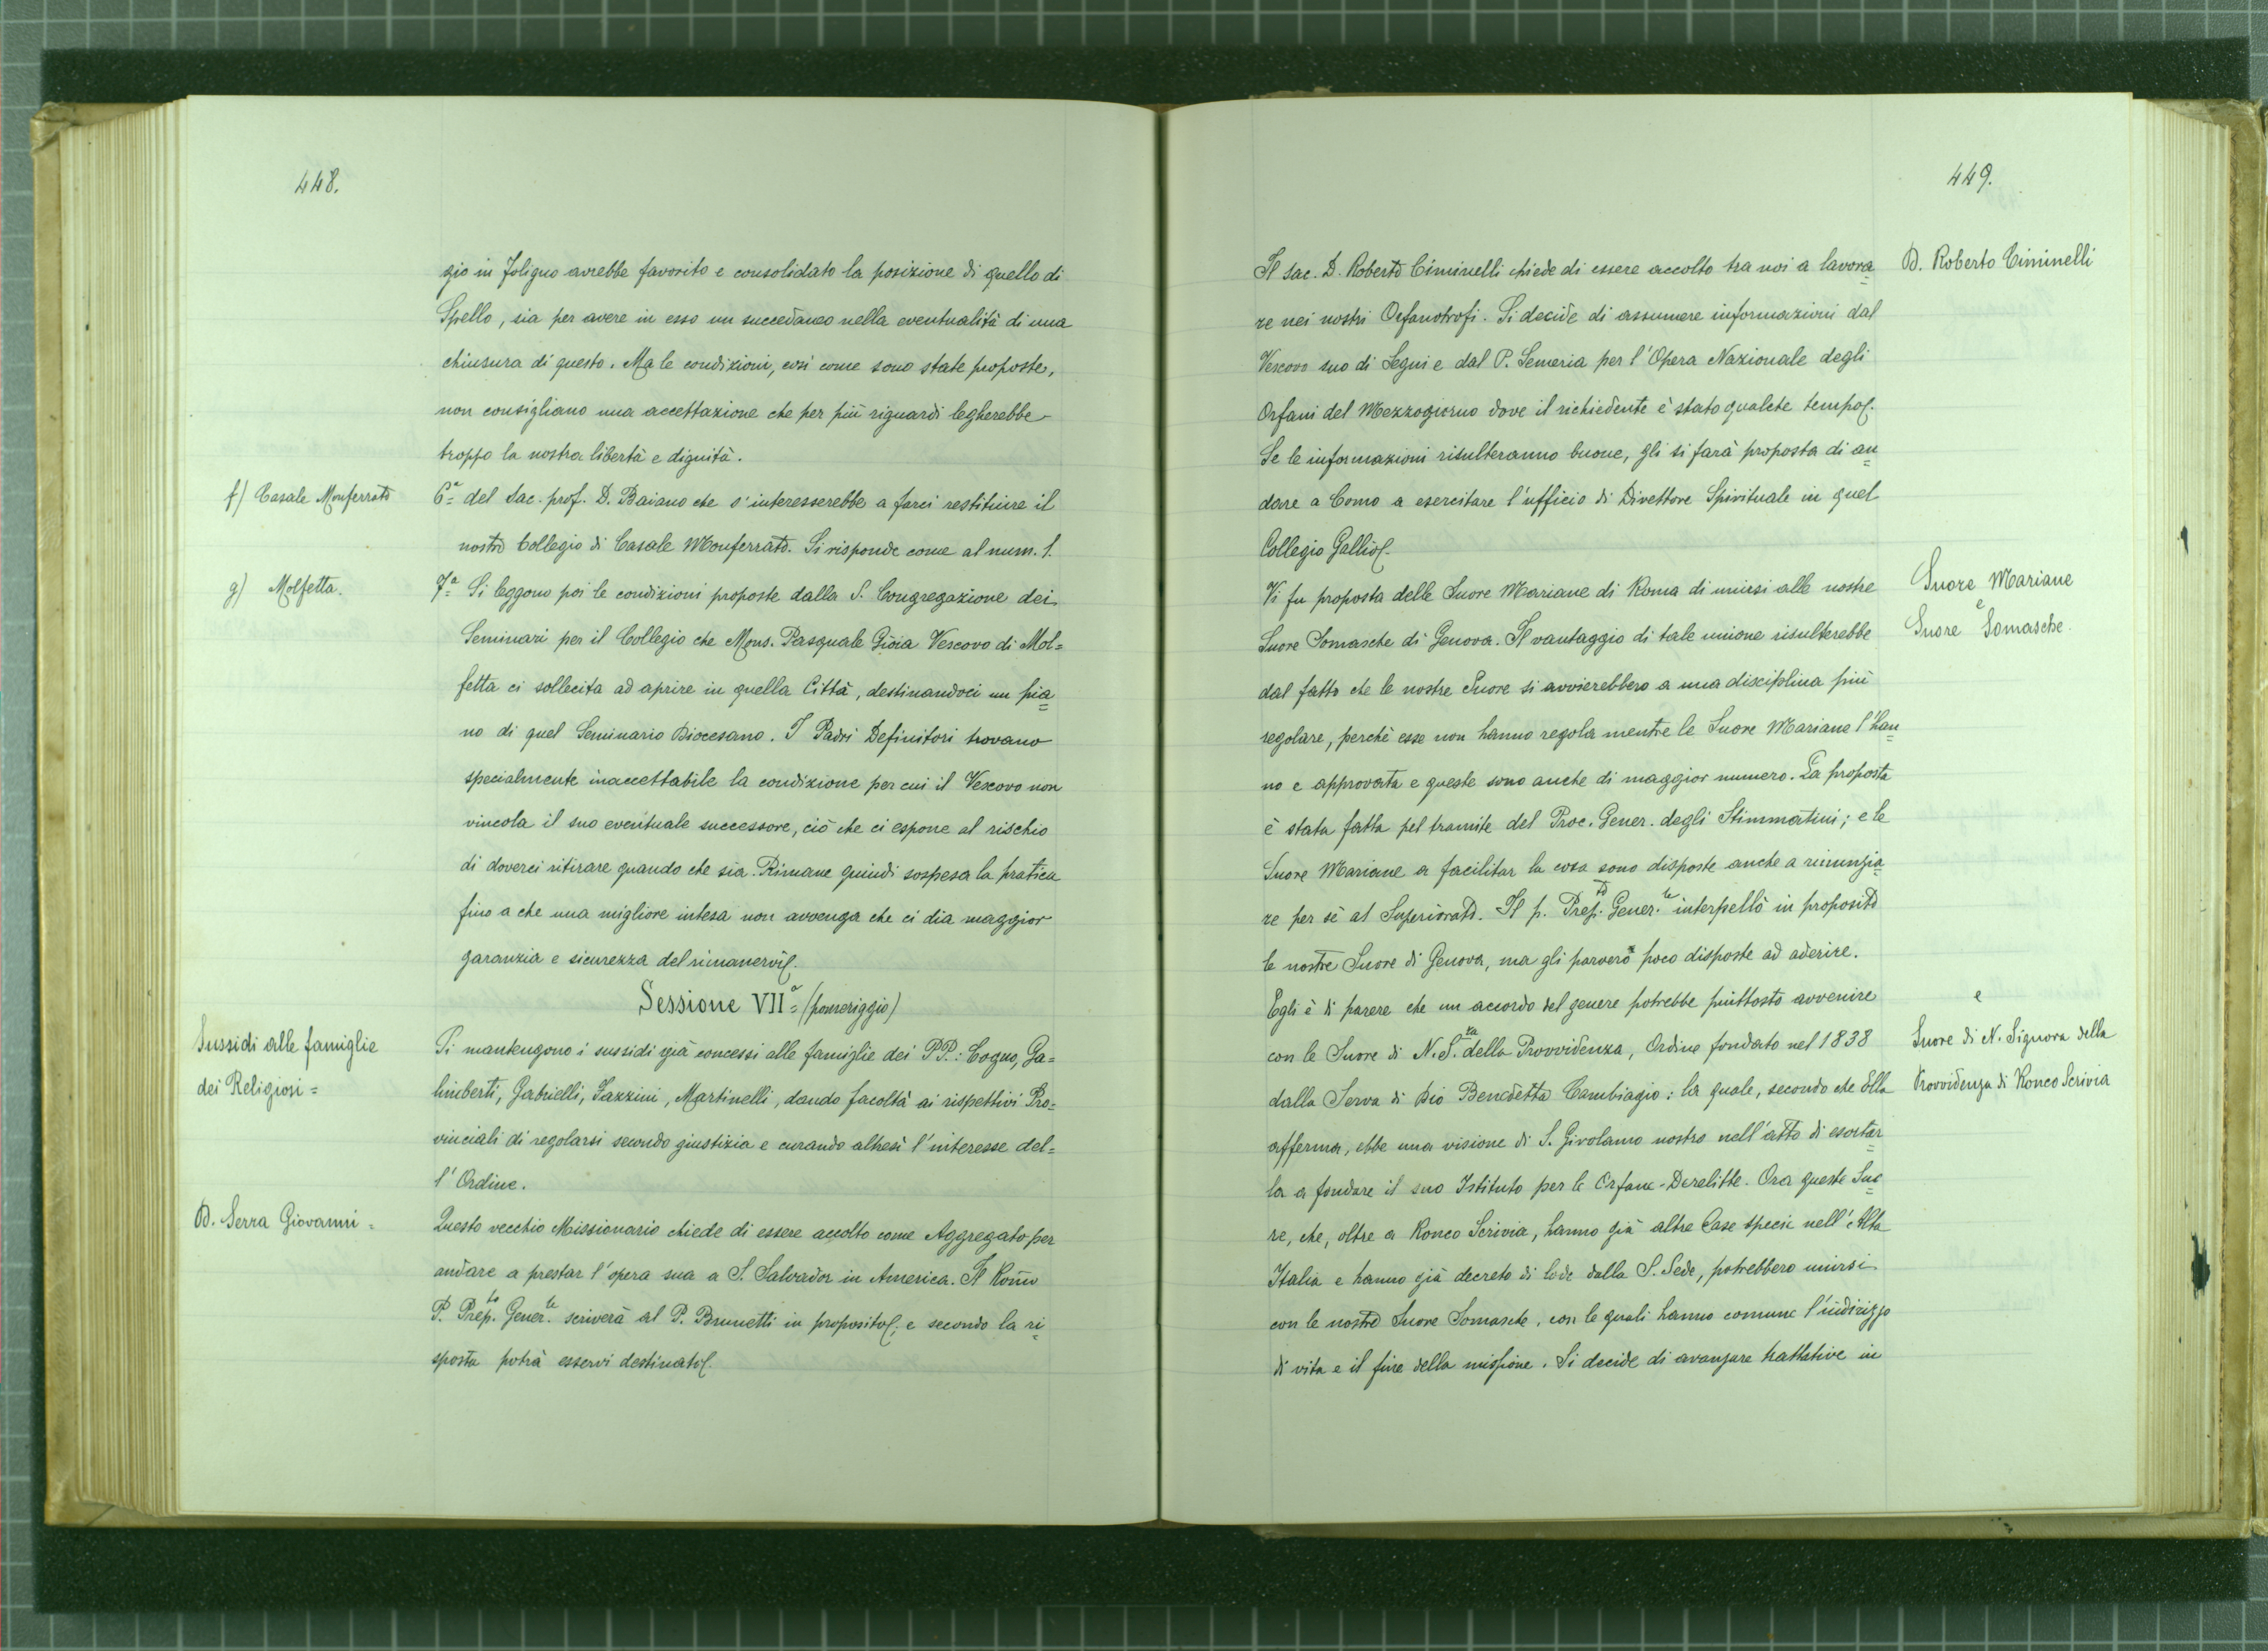 448.
gio in Foligno avrebbe favorito e consolidato la posizione di quello di
Spello, sia per avere in esso un succedaneo nella eventualità di una
chiusura di questo. Ma le condizioni, così come sono state proposte,
non consigliano una accettazione che per più riguardi legherebbe
troppo la nostra libertà e dignità.
f) Casale Monferrato
6ª del Sac. prof. D. Baiano che s'interesserebbe a farci restituire il
nostro Collegio di Casale Monferrato. Si risponde come al num. 1.
g) Molfetta.
7ª Si leggono poi le condizioni proposte dalla S. Congregazione dei
Seminari per il Collegio che Mons. Pasquale Gioia Vescovo di Mol=
fetta ci sollecita ad aprire in quella Città, destinandoci un pia=
no di quel Seminario Diocesano. I Padri Definitori trovano
specialmente inaccettabile la condizione per cui il Vescovo non
vincola il suo eventuale successore, ciò che ci espone al rischio
di doverci ritirare quando che sia. Rimane quindi sospesa la pratica
fino a che una migliore intesa non avvenga che ci dia maggior
garanzia e sicurezza del rimanervi.
Sessione VIIª (pomeriggio)
Sussidi alle famiglie
dei Religiosi =
Si mantengono i sussidi già concessi alle famiglie dei PP.: Cogno, Ga=
limberti, Gabrielli, Zazzini, Martinelli, dando facoltà ai rispettivi Pro=
vinciali di regolarsi secondo giustizia e curando altresì l'interesse del=
l'Ordine.
D. Serra Giovanni =
Questo vecchio Missionario chiede di essere accolto come Aggregato per
andare a prestar l'opera sua a S. Salvador in America. Il Romo
P. Prep.to Gener.le scriverà al P. Brunetti in proposito; e secondo la ri=
sposta potrà esservi destinato.
449.
D. Roberto Ciminelli
Il Sac. D. Roberto Ciminelli chiede di essere accolto tra noi a lavora=
re nei nostri Orfanotrofi. Si decide di assumere informazioni dal
Vescovo suo di Segni e dal P. Semeria per l'Opera Nazionale degli
Orfani del Mezzogiorno dove il richiedente è stato qualche tempo.
Se le informazioni risulteranno buone, gli si farà proposta di an=
dare a Como a esercitare l'ufficio di Direttore Spirituale in quel
Collegio Gallio.
Suore Mariane
e
Suore Somasche.
Vi fu proposta delle Suore Mariane di Roma di unirsi alle nostre
Suore Somasche di Genova. Il vantaggio di tale unione risulterebbe
dal fatto che le nostre Suore si avvierebbero a una disciplina più
regolare, perchè esse non hanno regola mentre le Suore Mariane l'han=
no e approvata e queste sono anche di maggior numero. La proposta
è stata fatta pel tramite del Proc. Gener. degli Stimmatini; e le
Suore Mariane a facilitar la cosa sono disposte anche a rinunzia=
re per sè al Superiorato. Il p. Prep.to Gener.le interpellò in proposito
le nostre Suore di Genova, ma gli parvero poco disposte ad aderire.
e
Suore di N. Signora della
Provvidenza di Ronco Scrivia
Egli è di parere che un accordo del genere potrebbe piuttosto avvenire
con le Suore di N. S.ra della Provvidenza, Ordine fondato nel 1838
dalla Serva di Dio Benedetta Cambiagio: la quale, secondo che Ella
afferma, ebbe una visione di S. Girolamo nostro nell'atto di esortar=
la a fondare il suo Istituto per le Orfane-Derelitte. Ora queste Suo=
re, che, oltre a Ronco Scrivia, hanno già altre Case specie nell'Alta
Italia e hanno già decreto di lode dalla S. Sede, potrebbero unirsi
con le nostre Suore Somasche, con le quali hanno comune l'indirizzo
di vita e il fine della missione. Si decide di avanzare trattative in